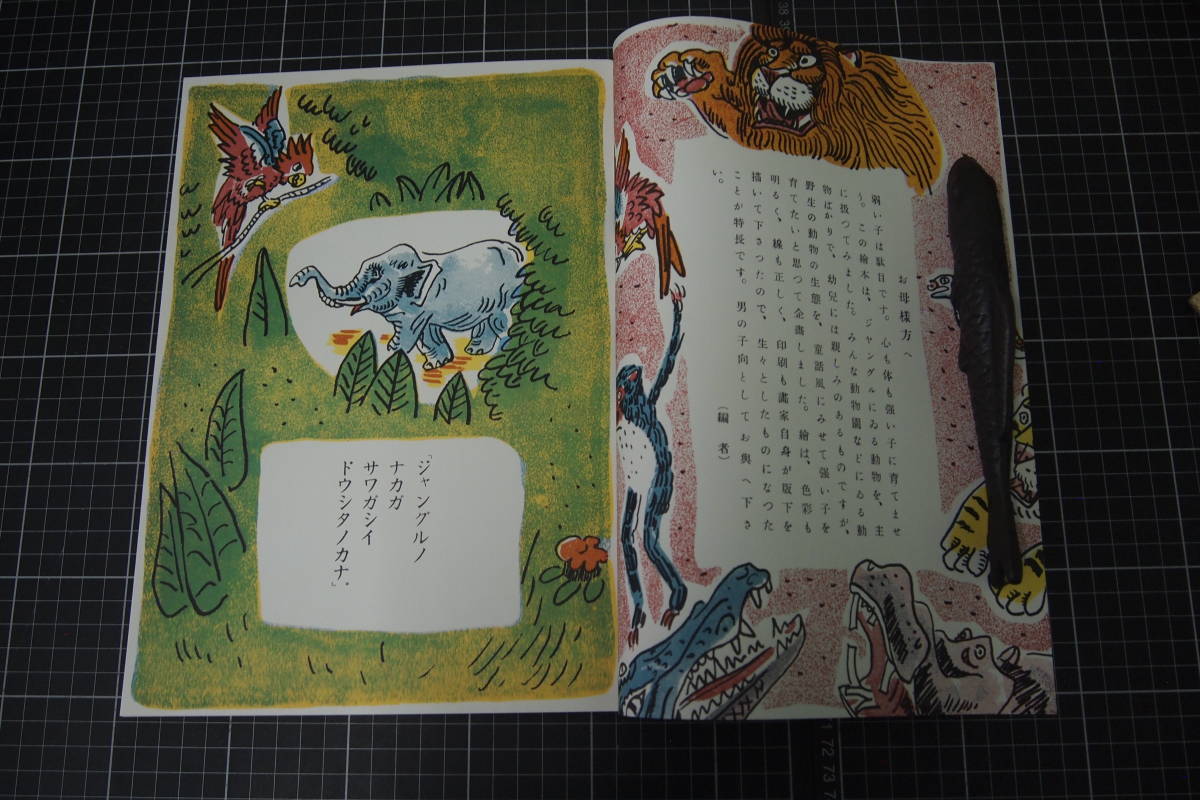 お母様方
弱い子は駄目です。心も体も強い子に育てませ
う。この繪本は、ジャングルにゐる動物を、主
に扱つてみました。みんな動物園などにゐる動
物ばかりで、幼兒には親しみのあるものですが、
野生の動物の生態を、童話風にみせて強い子を
育てたいと思つて企畫しました。繪は、色彩も
明るく、線も正しく、印刷も畫家自身が版下を
描いて下さつたので、生々としたものになつた
ことが特長です。男の子向としてお與へ下さ
い。
（編者）
「ジャングルノ
ナカガ
サワガシイ
ドウシタノカナ」。
38
72 73